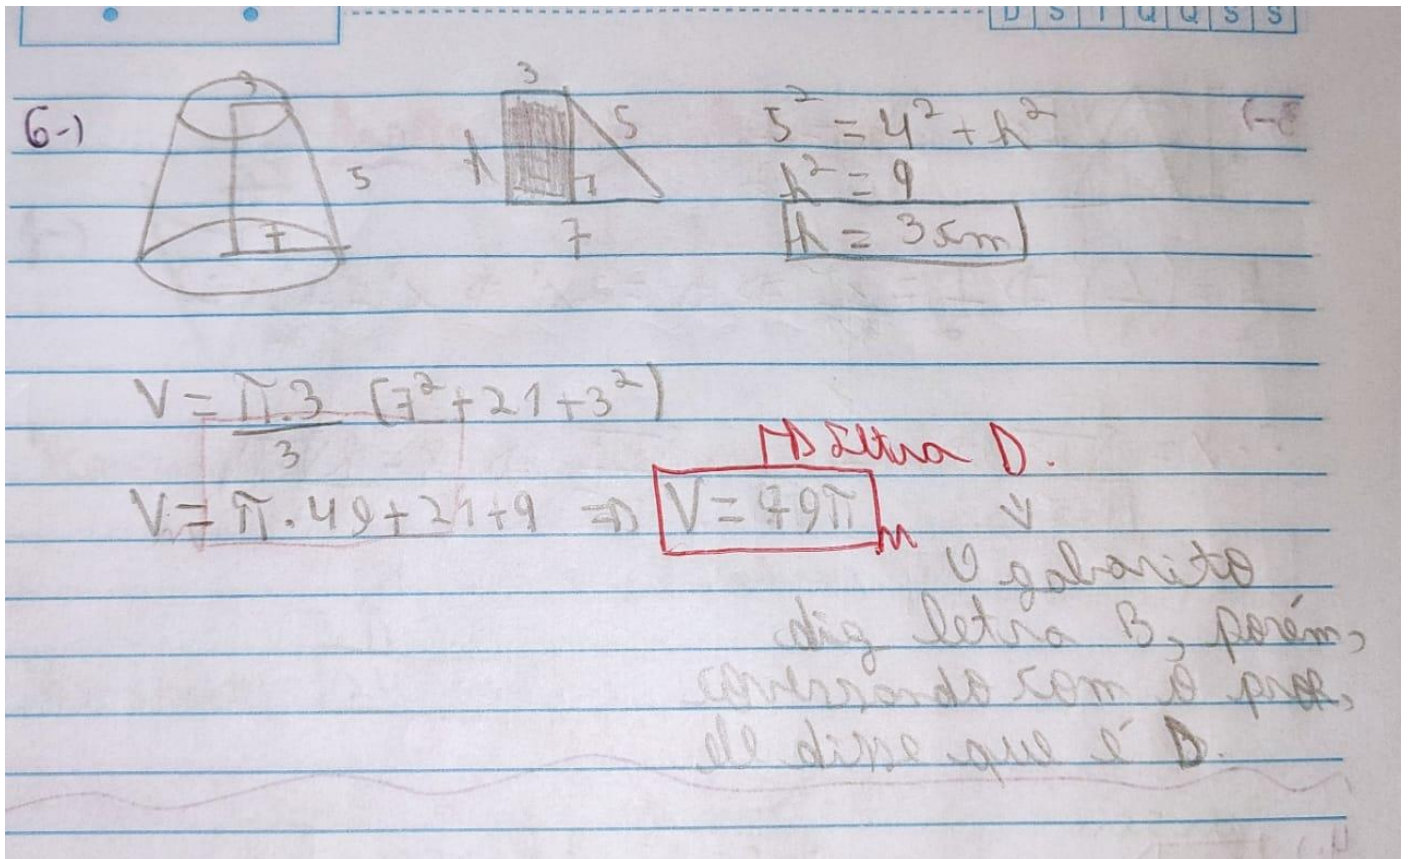 D S T Q Q S S
6-)
3
5
7
3
5
h
7
5² = 4² + h²
h² = 9
h = 3 cm
V = π.3 (7² + 21 + 3²)
3
V = π.49 + 21 + 9 => V = 79π
→ Letra D.
O gabarito
diz letra B, porém,
conversando com o prof,
ele disse que é D.